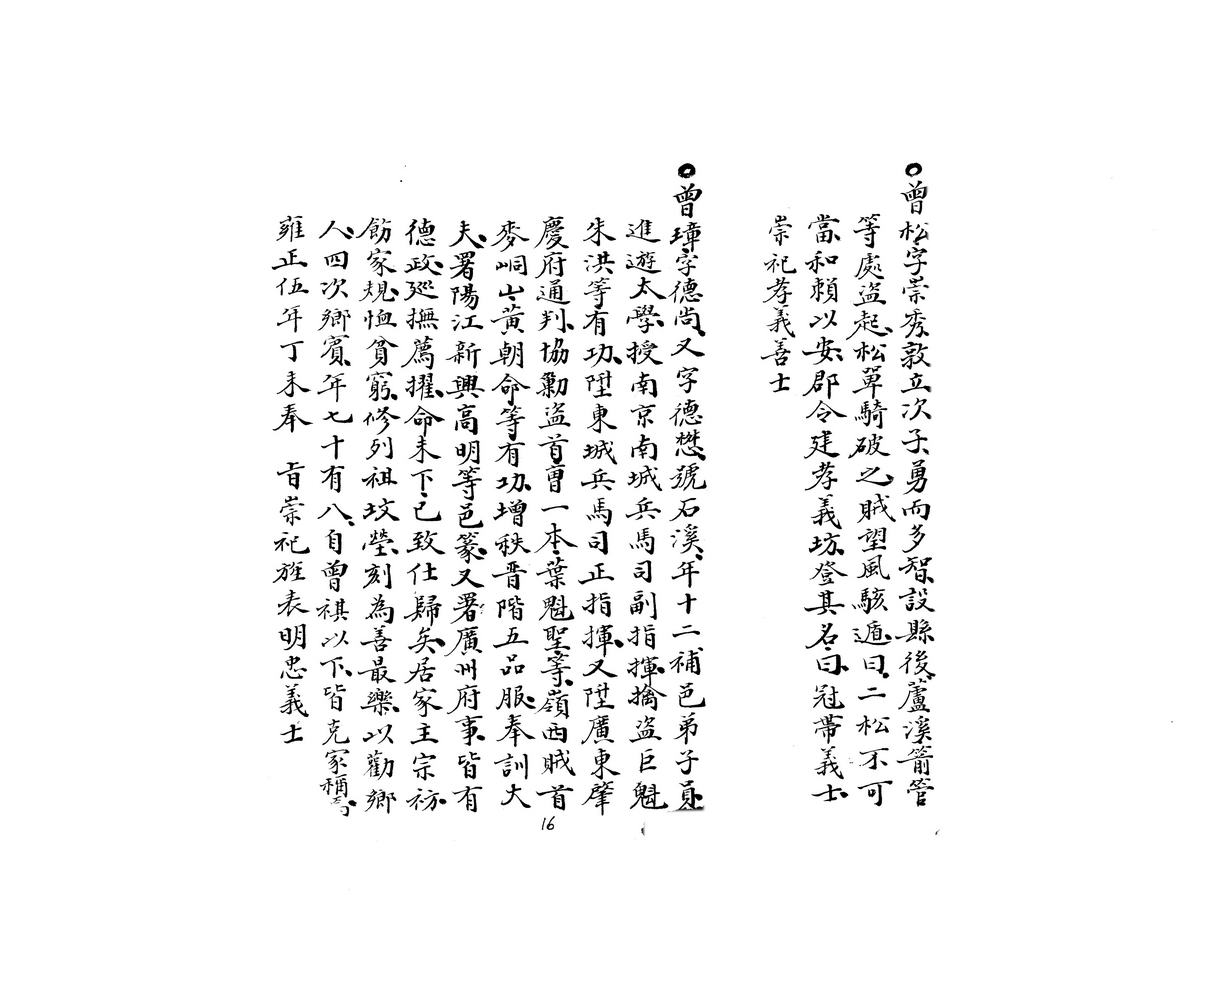 ○曾松字崇秀敦立次子勇而多智設縣後蘆溪箭管
等處盜起松單騎破之賊望風駭遁曰二松不可
當和賴以安郡令建孝義坊登其名曰冠帶義士
崇祀孝義善士
○曾璋字德尚又字德懋號石溪年十二補邑弟子員
進遊太學授南京南城兵馬司副指揮擒盜巨魁
朱洪等有功陞東城兵馬司正指揮又陞廣東肇
慶府通判協勦盜首曾一本葉魁聖等嶺西賊首
麥峒山黃朝命等有功增秩晋階五品服奉訓大
夫署陽江新興高明等邑篆又署廣州府事皆有
德政廵撫薦擢命未下已致仕歸矣居家主宗祊
飭家規恤貧窮修列祖坟塋刻為善最樂以勸鄉
人四次鄉賓年七十有八自曾祺以下皆克家稱
雍正伍年丁未奉 旨崇祀旌表明忠義士
16